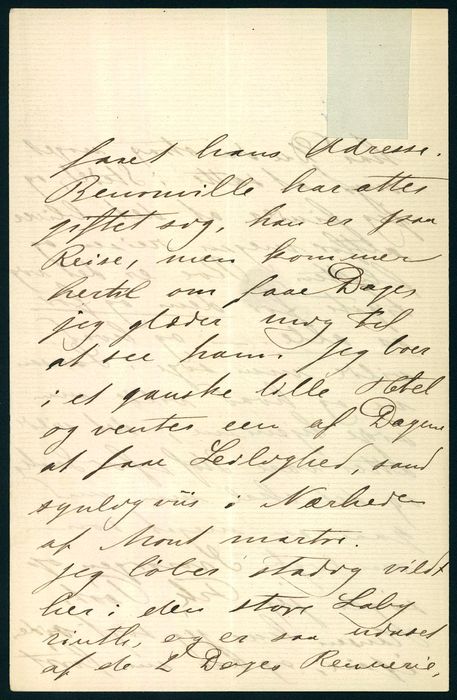 faaet hans Adresse.
Benonville har atter
giftet sig, han er paa
Reise, men kommer
hertil om faae Dage
jeg glæder mig til
at see ham. Jeg boer
i et ganske lille Hotel
og venter een af Dagene
at faae Leilighed, sand
synligviis i Nærheden
af Mont martre.
jeg løber stadig vildt
her i den store Laby
rinth, og er saa udaset
af de 2 Dages Renneri,